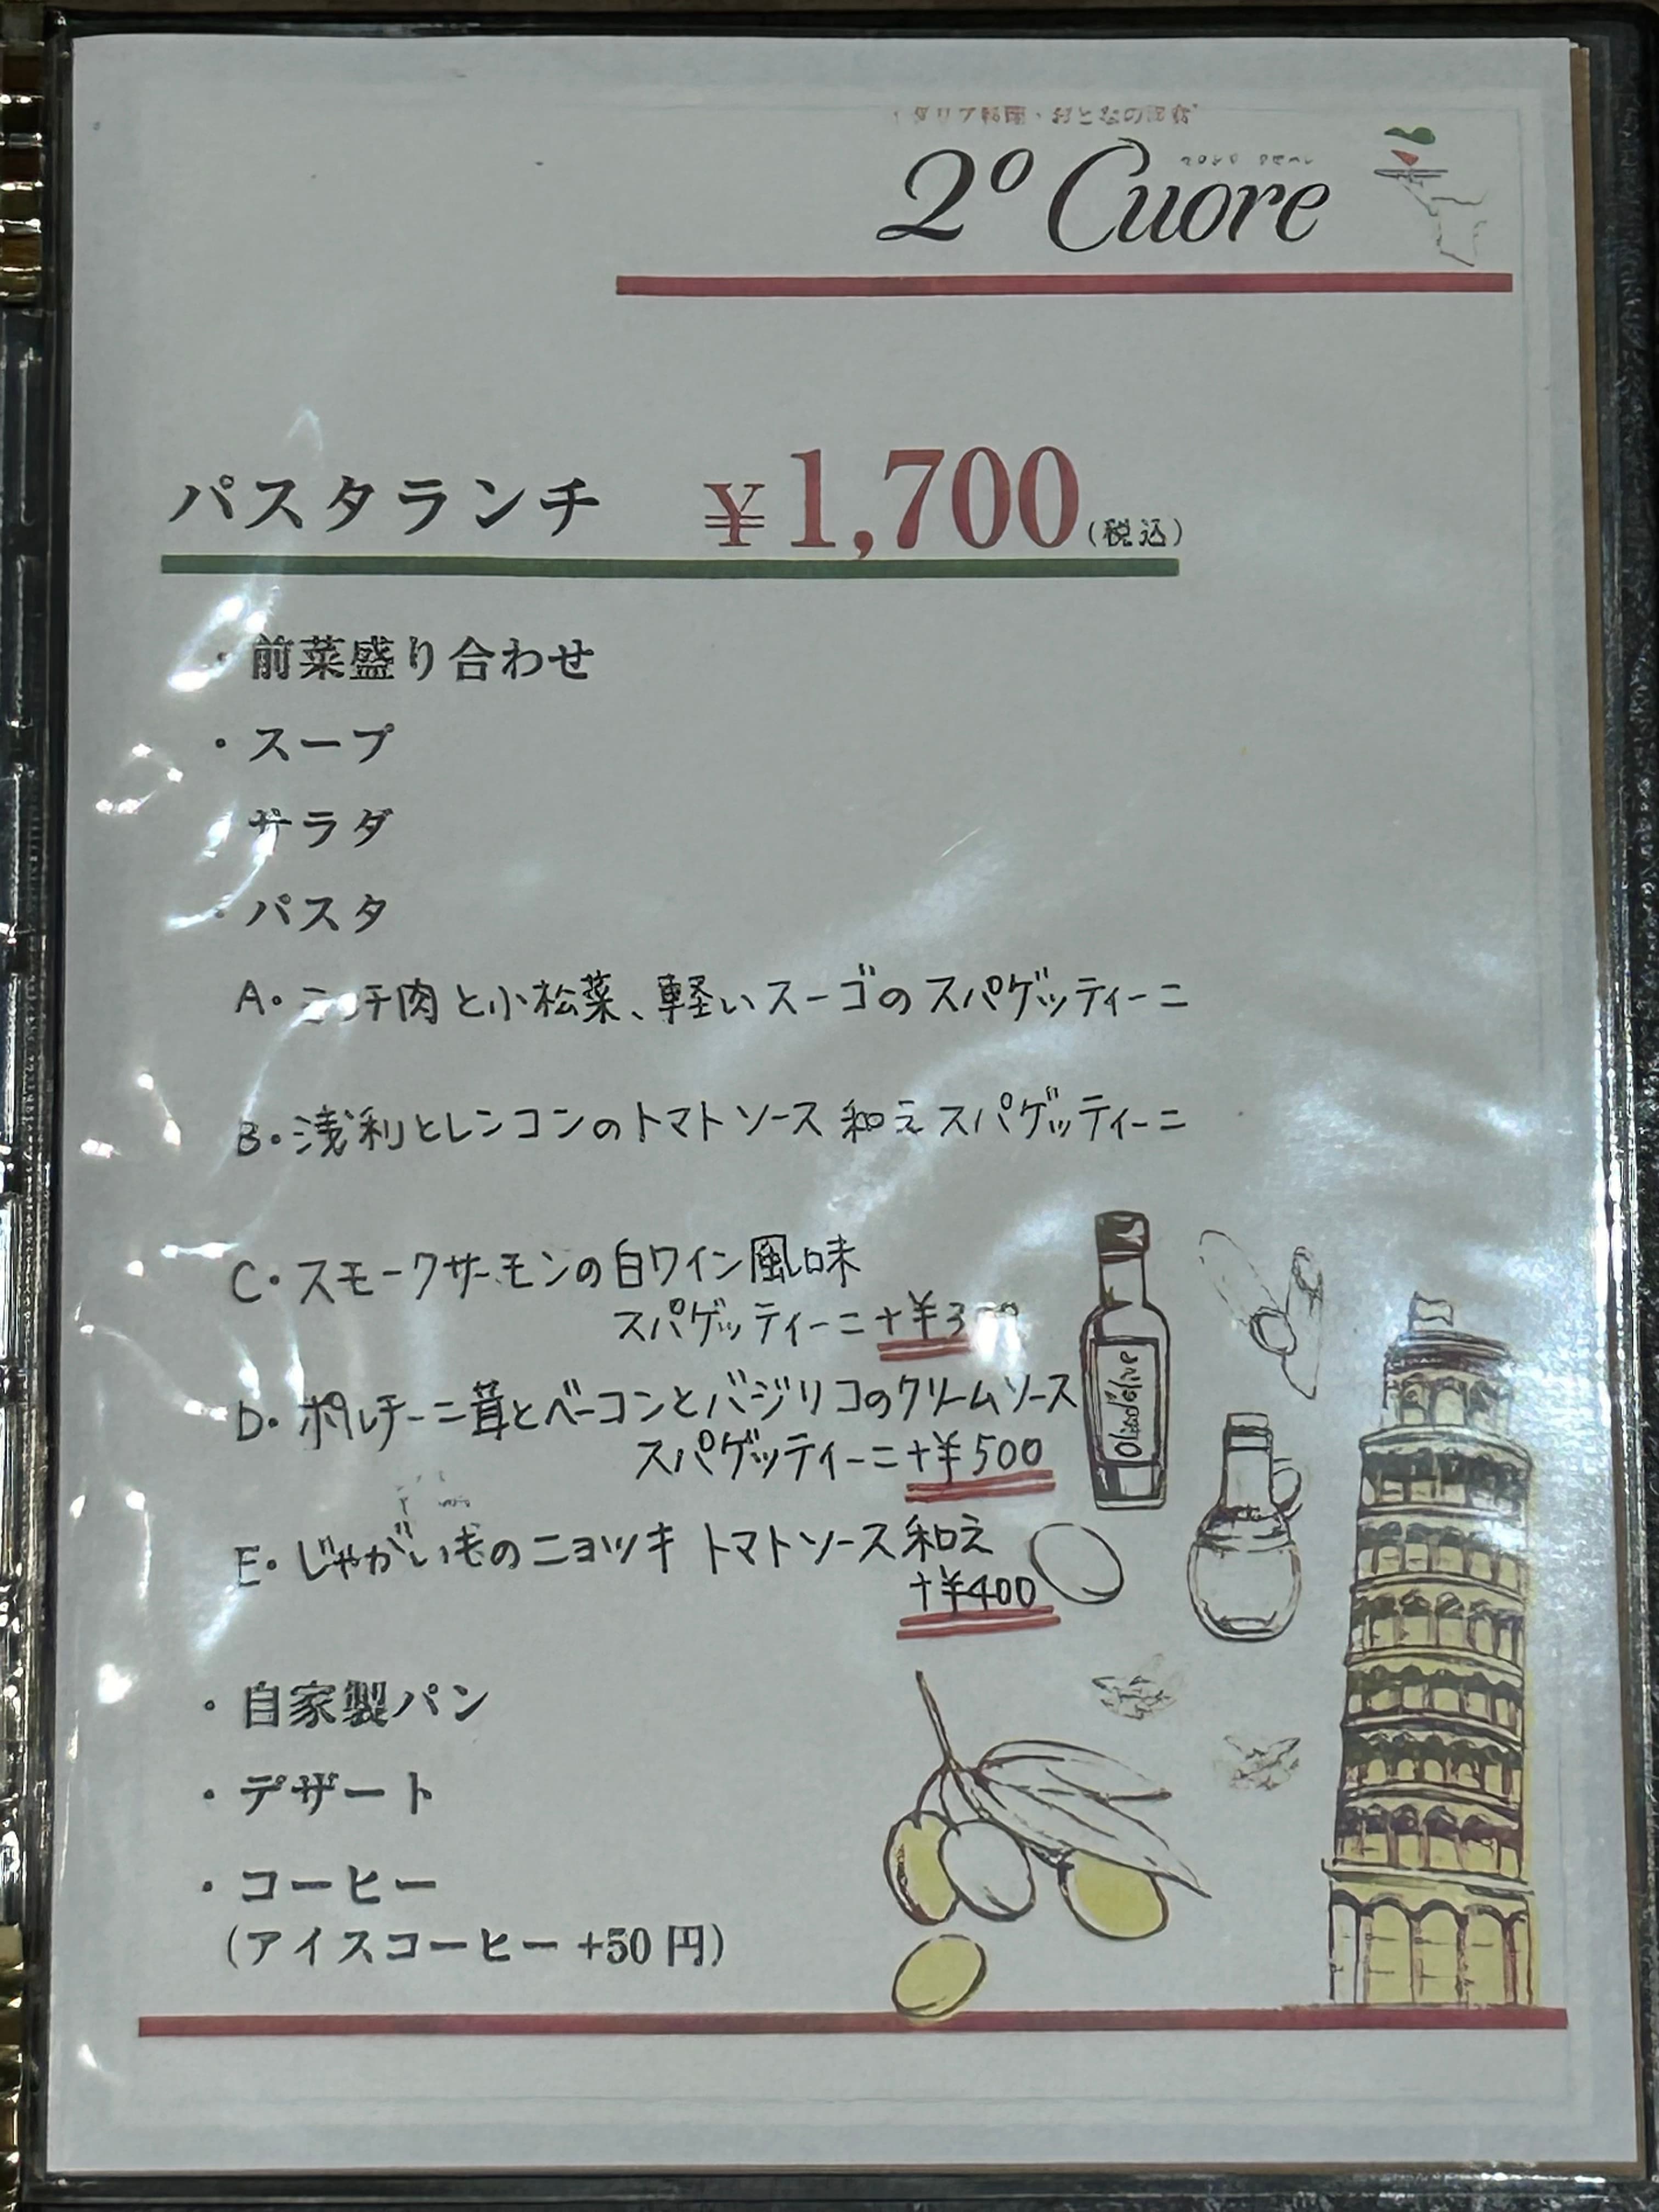 2° Cuore
パスタランチ ¥1,700(税込)
・前菜盛り合わせ
・スープ
サラダ
・パスタ
A・ミンチ肉と小松菜、軽いスーゴのスパゲッティーニ
B・浅利とレンコンのトマトソース和えスパゲッティーニ
C・スモークサーモンの白ワイン風味
スパゲッティーニ+¥3
D・ポルチーニ茸とベーコンとバジリコのクリームソース
スパゲッティーニ+¥500
E・じゃがいものニョッキ トマトソース和え
+¥400
・自家製パン
・デザート
・コーヒー
(アイスコーヒー+50円)